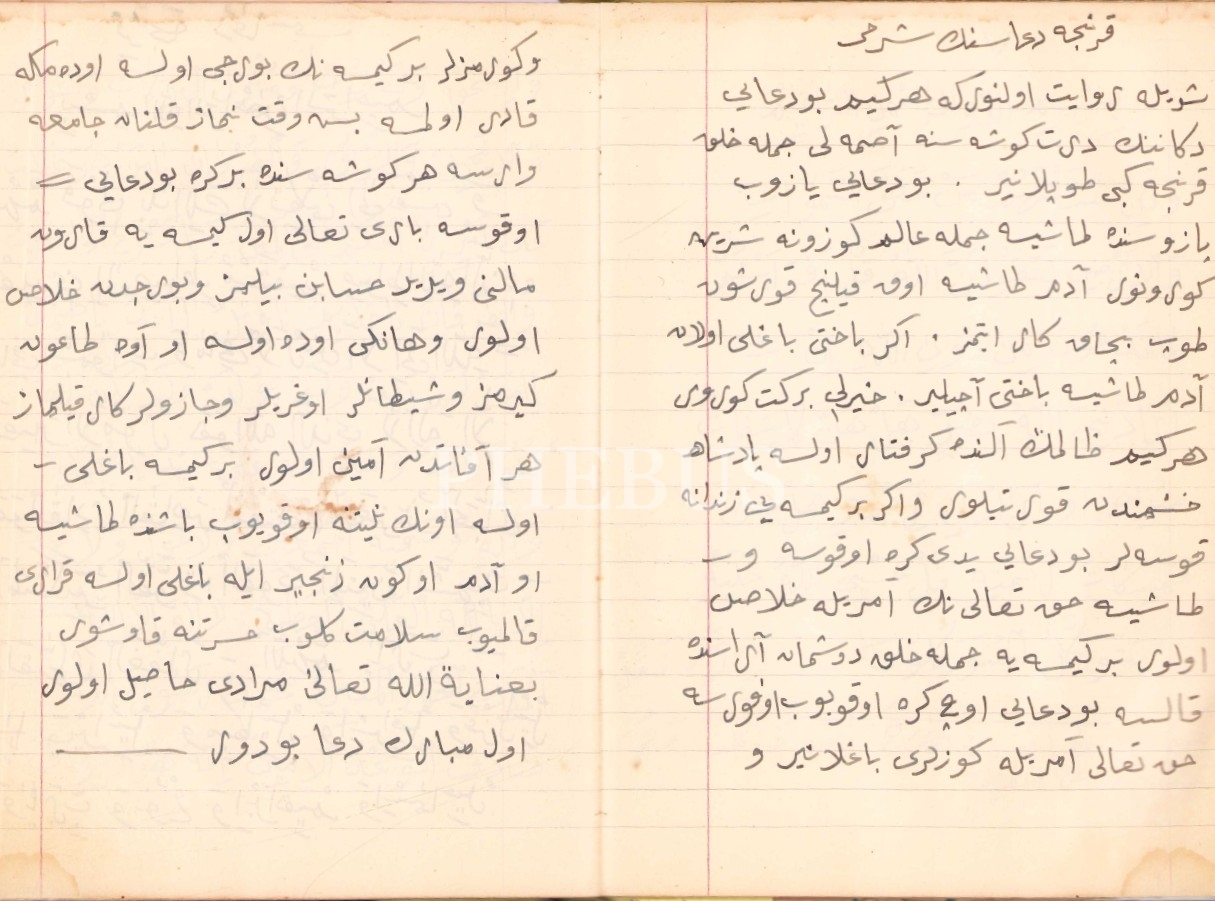 قرنجه دعاسنك شرحى
شويله روايت اولنور كه هر كيم بو دعايى
دكاننك درت كوشه سنه آصمه لى جمله خلق
قرنجه كبى طوپلانير . بو دعايى يازوب
بازوسنده طاشيسه جمله عالم كوزونه شرين
كورونور آدم طاشيسه اوق قيلنج قورشون
طوپ بچاق كار ايتمز . اكر باختى باغلى اولان
آدم طاشيسه باختى آچيلير . خيرلى بركت كورور
هر كيم ظالمك آلنده كرفتار اولسه پادشاه
خشمندن قورتيلور واكر بر كيمسه يى زندانه
قوسه لر بو دعايى يدى كره اوقوسه و
طاشيسه حق تعالى نك آمريله خلاص
اولور بر كيمسه يه جمله خلق دوشمان آراسنده
قالسه بو دعايى اوچ كره اوقويوب اوفورسه
حق تعالى آمريله كوزلرى باغلانير و
وكورمزلر بر كيمسه نك بورجى اولسه اوده مكه
قادر اولمسه بش وقت نماز قلنان جامعه
وارسه هر كوشه سنده بر كره بو دعايى =
اوقوسه بارى تعالى اول كيمسه يه قارون
مالنى ويرير حسابن بيلمز وبورجدن خلاص
اولور وهانكى اوده اولسه او آوه طاعون
كيرمز وشيطانلر اوغريلر وجازولر كار قيلماز
هر آفاتدن آمين اولور بر كيمسه باغلى -
اولسه اونك نيتنه اوقويوب باشنده طاشيسه
او آدم او كون زنجير ايله باغلى اولسه قرارى
قالميوب سلامت كلوب حسرتنه قاوشور
بعناية الله تعالى مرادى حاصيل اولور
اول مبارك دعا بودور
PHEBUS